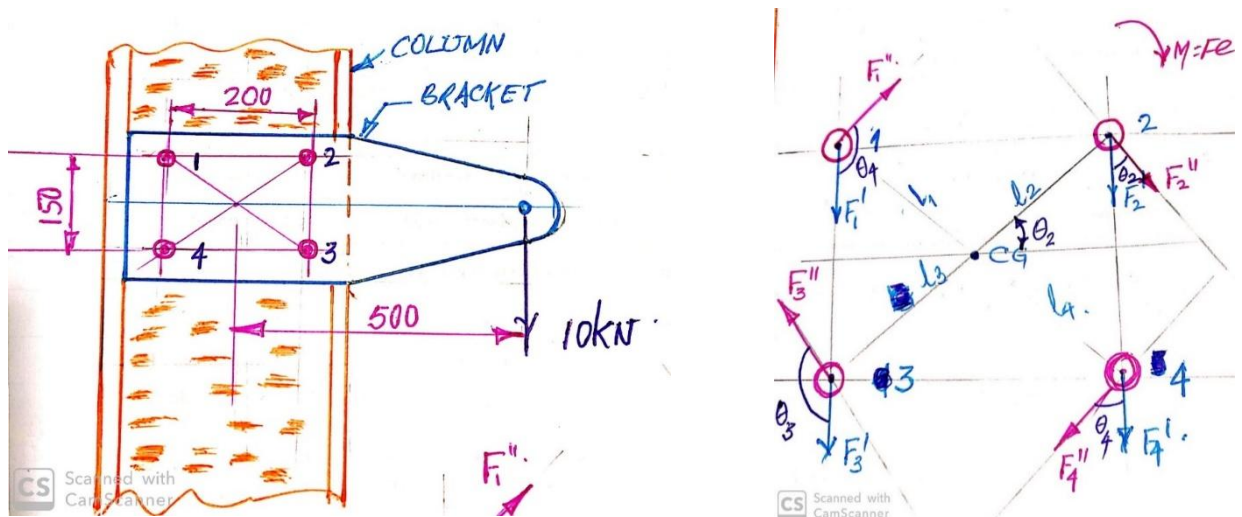 COLUMN
BRACKET
200
1
2
150
4
3
500
10KN
F₁"
CS Scanned with
CamScanner
M=Fe
F₁"
1
θ₄
F₁'
2
θ₂
F₂'
F₂"
l₁
l₂
θ₂
CG
l₃
l₄
F₃"
3
θ₃
F₃'
4
θ₄
F₄"
F₄'
CS Scanned with
CamScanner